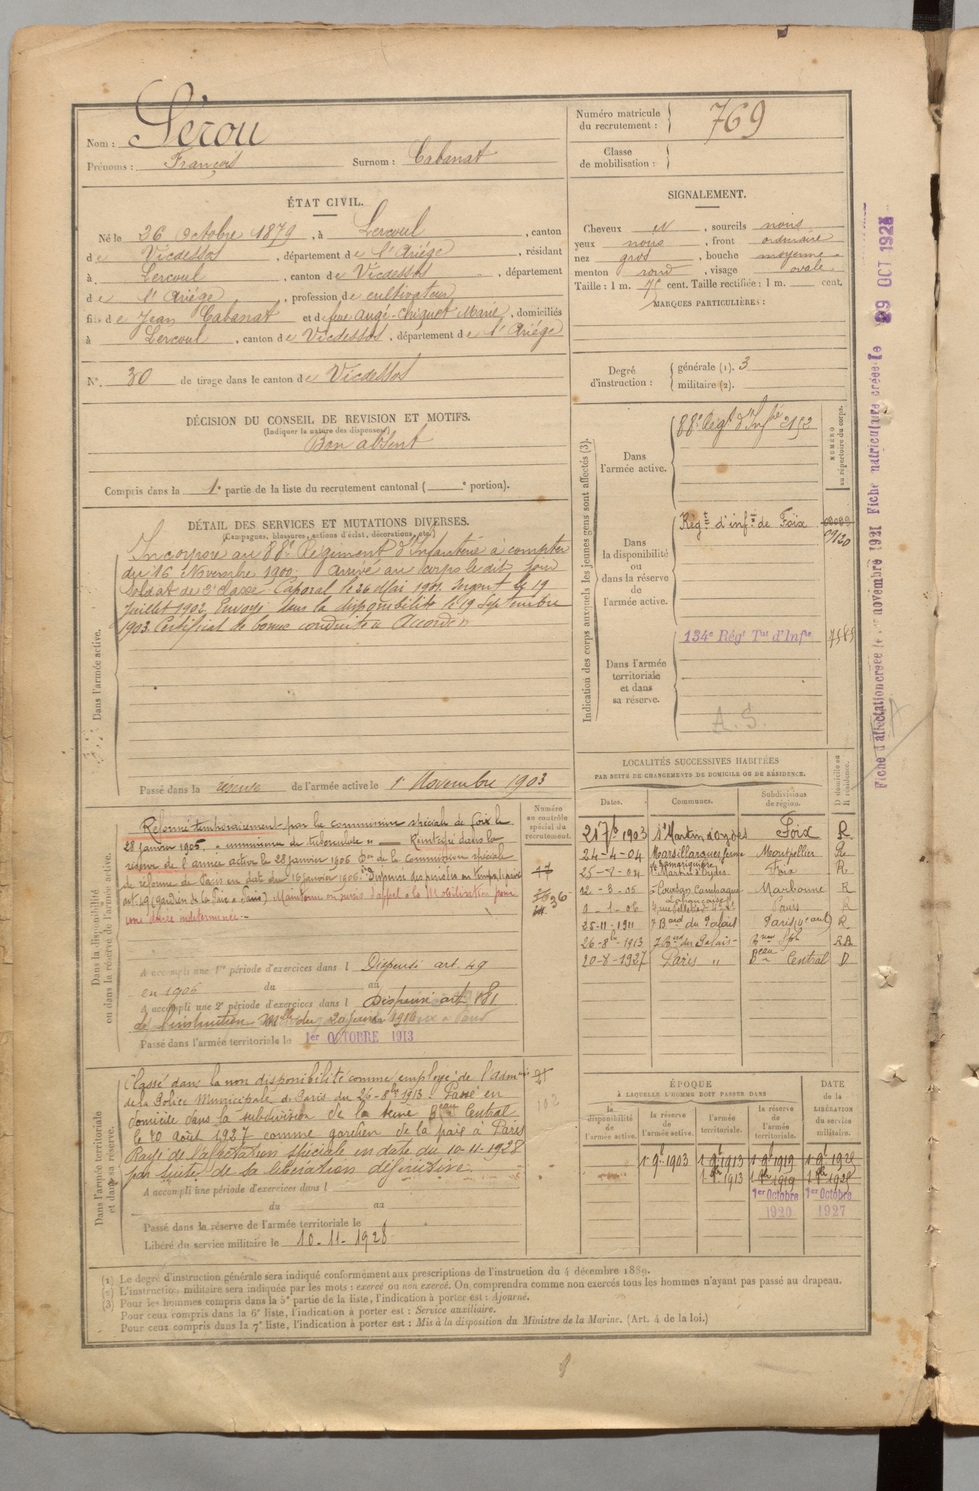 Nom : Sérou
Prénoms : François Surnom : Cabanat
Numéro matricule du recrutement : 769
Classe de mobilisation :
ÉTAT CIVIL.
Né le 26 Octobre 1879, à Lercoul, canton
de Vicdessos, département de l'Ariège, résidant
à Lercoul, canton de Vicdessos, département
de l'Ariège, profession de cultivateur
fils de Jean Cabanat et de feue Augé-Chiquet Marie, domiciliés
à Lercoul, canton de Vicdessos, département de l'Ariège
N° 30 de tirage dans le canton de Vicdessos
SIGNALEMENT.
Cheveux et, sourcils noirs
yeux noirs, front ordinaire
nez gros, bouche moyenne
menton rond, visage ovale
Taille : 1 m. cent. Taille rectifiée : 1 m. cent.
MARQUES PARTICULIÈRES :
Degré d'instruction : générale (1). 3
militaire (2).
DÉCISION DU CONSEIL DE REVISION ET MOTIFS.
(Indiquer la nature des dispenses.)
Bon absent
Compris dans la 1e partie de la liste du recrutement cantonal ( e portion).
DÉTAIL DES SERVICES ET MUTATIONS DIVERSES.
(Campagnes, blessures, actions d'éclat, décorations, etc.)
Dans l'armée active.
Incorporé au 88e Régiment d'Infanterie à compter
du 16 Novembre 1900, Arrivé au corps le dit jour
soldat de 2e classe Caporal le 26 Mai 1901 Sergent le 19
Juillet 1902. Envoyé dans la disponibilité le 19 Septembre
1903. Certificat de bonne conduite Accordé
Passé dans la réserve de l'armée active le 1er Novembre 1903
Indication des corps auxquels les jeunes gens sont affectés (3).
NUMÉRO au répertoire du corps.
Dans l'armée active.
88e Régt d'Infie 2152
Dans la disponibilité ou dans la réserve de l'armée active.
Régt d'infie de Foix
Dans l'armée territoriale et dans sa réserve.
134e Régt Tal d'Infie
A. S.
LOCALITÉS SUCCESSIVES HABITÉES
PAR SUITE DE CHANGEMENTS DE DOMICILE OU DE RÉSIDENCE.
Dates. Communes. Subdivisions de région. D domicile ou R résidence.
21 7bre 1903 St Martin d'Oydes Foix R
24-4-04 Marsillargues Montpellier R
25-8-04 St Martin d'Oydes Foix R
12-3-05 Narbonne R
9-1-06 Paris R
25-11-1911 7 Bard du Palais Paris (4e arrt) R
26-8bre-1913 7 Bd du Palais RA
20-8-1927 Paris " Beau Central D
Dans la disponibilité ou dans la réserve de l'armée active.
Numéro au contrôle spécial du recrutement.
Réformé temporairement par la commission spéciale de Foix le
28 janvier 1905, " imminence de tuberculose " Réintégré dans la
réserve de l'armée active le 28 janvier 1906 Don de la Commission spéciale
de réforme de Paris en date du 16 janvier 1906
art. 49 (gardien de la Paix à Paris) Maintenu en sursis d'appel à la Mobilisation pour
une durée indéterminée.
A accompli une 1re période d'exercices dans l Dispensé art. 49
en 1906 du au
A accompli une 2e période d'exercices dans l Dispensé art. 181
de l'instruction du 20 1910
Passé dans l'armée territoriale le 1er OCTOBRE 1913
Dans l'armée territoriale et dans sa réserve.
Classé dans la non disponibilité comme employé de l'admon
de la Police Municipale de Paris du 26-8bre 1913. Passé en
domicile dans la subdivision de la Seine Beau Central
le 20 Août 1927 comme gardien de la paix à Paris
Rayé de l'affectation spéciale en date du 10-11-1928
par suite de sa libération définitive.
A accompli une période d'exercices dans l
du au
Passé dans la réserve de l'armée territoriale le
Libéré du service militaire le 10-11-1928
ÉPOQUE
À LAQUELLE L'HOMME DOIT PASSER DANS
DATE de la LIBÉRATION du service militaire.
la disponibilité de l'armée active. la réserve de l'armée active. l'armée territoriale. la réserve de l'armée territoriale.
1 9e 1903 1 9e 1913 1 9e 1919
1er Octobre 1er Octobre
1920 1927
(1) Le degré d'instruction générale sera indiqué conformément aux prescriptions de l'instruction du 4 décembre 1889.
(2) L'instruction militaire sera indiquée par les mots : exercé ou non exercé. On comprendra comme non exercés tous les hommes n'ayant pas passé au drapeau.
(3) Pour les hommes compris dans la 5e partie de la liste, l'indication à porter est : Ajourné.
Pour ceux compris dans la 6e liste, l'indication à porter est : Service auxiliaire.
Pour ceux compris dans la 7e liste, l'indication à porter est : Mis à la disposition du Ministre de la Marine. (Art. 4 de la loi.)
Fiche d'affectation créée le novembre 1921 Fiche matriculaire créée le 29 OCT 1928